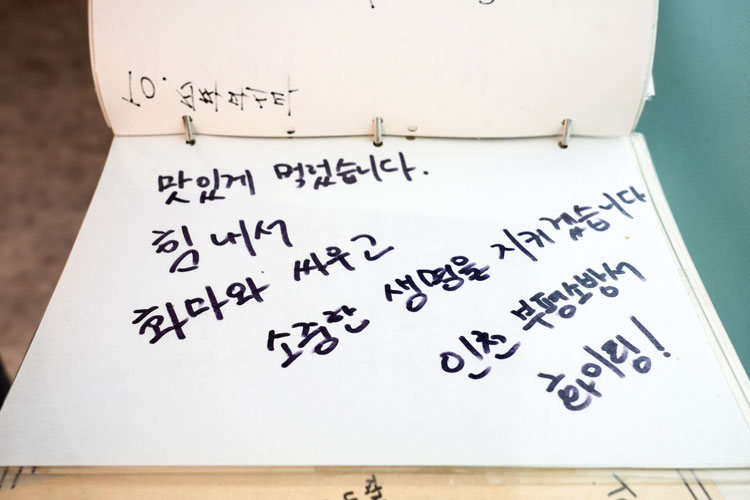 맛있게 먹었습니다.
힘내서
화마와 싸우고
소중한 생명을 지키겠습니다
인천 부평소방서
화이링!